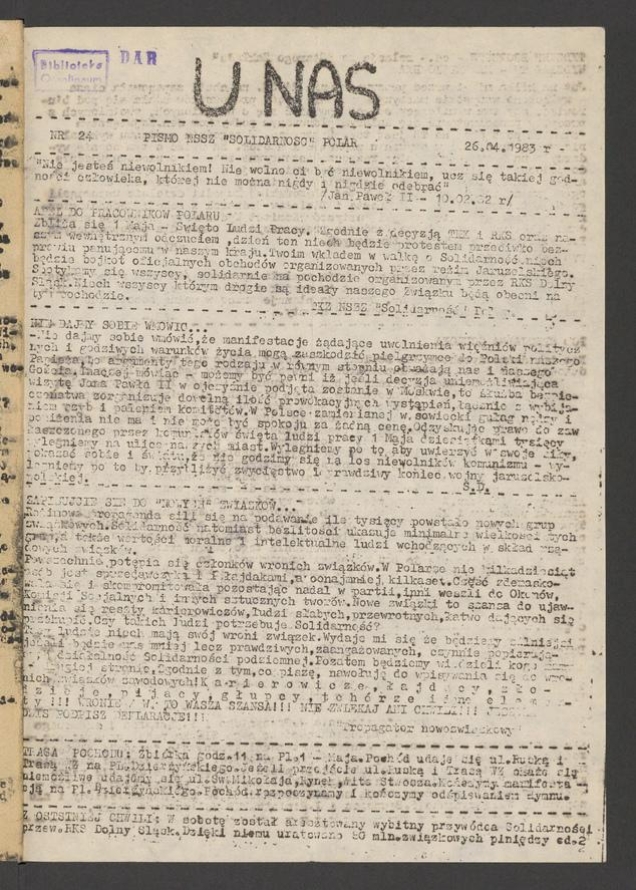 Biblioteka
Ossolineum
DAR
U NAS
NR 24 PISMO NSSZ "SOLIDARNOSC" POLAR 26.04.1983 r -
"Nie jesteś niewolnikiem! Nie wolno ci być niewolnikiem, ucz się takiej god-
ności człowieka, której nie można nigdy i nigdzie odebrać"
/Jan Paweł II - 10.02.82 r/
APEL DO PRACOWNIKÓW POLARU
Zbliża się 1 Maja - Święto Ludzi Pracy. Zgodnie z decyzją TKK i RKS oraz na-
szym wewnętrznym odczuciem ,dzień ten niech będzie protestem przeciwko bez-
prawiu panującemu w naszym kraju.Twoim wkładem w walkę o Solidarność niech
będzie bojkot oficjalnych obchodów organizowanych przez reżim Jaruzelskiego.
Spotkajmy się wszyscy, solidarnie na pochodzie organizowanym przez RKS Dolny
Śląsk.Niech wszyscy którym drogie są ideały naszego związku będą obecni na
tym pochodzie.
TKZ NSZZ "Solidarność"
NIE DAJMY SOBIE WMÓWIĆ...
-Nie dajmy sobie wmówić,że manifestacje żądające uwolnienia więźniów politycz
nych i godziwych warunków życia mogą zaszkodzić pielgrzymce do Polski naszego
Papieża.Bo argumenty tego rodzaju w równym stopniu obrażają nas i naszego
Gościa.Inaczej mówiąc - możemy być pewni iż jeśli decyzja uniemożliwiająca
wizytę Jana Pawła II w ojczyźnie podjęta zostanie w Moskwie, to służba bezpie-
czeństwa zorganizuje dowolną ilość prowokacyjnych wystąpień,łącznie z wybija-
niem szyb i paleniem komitetów.W Polsce zamienianej w sowiecki gułag nędzy i
poniżenia nie ma i nie może być spokoju za żadną cenę.Odzyskując prawo do zaw
łaszczonego przez komunistów święta ludzi pracy 1 Maja dziesiątkami tysięcy
wylegniemy na ulice naszych miast.Wylegniemy po to aby uwierzyć w swoje siły,
okazać sobie i światu,że nie godzimy się na los niewolników komunizmu - wy-
legniemy po to by przybliżyć zwycięstwo i prawdziwy koniec wojny jaruzelsko-
polskiej.
S.D.
ZAPISUJCIE SIĘ DO "NOWYCH" ZWIĄZKÓW...
Reżimowa propaganda sili się na podawanie ile tysięcy powstało nowych grup
związkowych.Solidarność natomiast bezlitośi ukazuje minimalne wielkości tych
grup,a także wartości moralne i intelektualne ludzi wchodzących w skład rzą-
dowych związków.
Powszechnie potępia się członków wronich związków.W Polarze nie kilkadziesiąt
osób jest sprzedawczykami i kajdakami,a conajmniej kilkaset.Część zdemasko-
wała się i skompromitowała pozostając nadal w partii,inni weszli do Okonów,
Komisji Socjalnych i innych sztucznych tworów.Nowe związki to szansa do ujaw-
nienia się reszty karierowiczów,ludzi słabych,przewrotnych,łatwo dających się
oszukać.Czy takich ludzi potrzebuje Solidarność?
ludzie niech mają swój wroni związek.Wydaje mi się że będziemy silniejsi
jeśli będzie nas mniej lecz prawdziwych,zaangażowanych, czynnie popierają-
działalność Solidarności podziemnej.Pozatem będziemy wiedzieli kogo mamy
stronie.Zgodnie z tym,co piszę, nawołuję do wpisywania się do wro-
nich związków zawodowych!K a r i e r o w i c z e, k a j d a c y, z ł o-
d z i e j e, p i j a c y, g ł u p c y, t c h ó r z e i i n n e
TO WASZA SZANSA!!! NIE ZWLEKAJ ANI CHWILI!!!
DZIŚ PODPISZ DEKLARACJE!!!
"Propagator nowozwiązkowy"
TRASA POCHODU: Zbiórka godz.11 na Pl.1 - Maja.Pochód udaje się ul.Ruską i
Trasą WZ na Pl.Dzierżyńskiego.Jeżeli przejście ul.Ruską i Trasą WZ okaże się
niemożliwe udajemy się ul.Św.Mikołaja,Rynek,Wita Stwosza.Kończymy manifesta -
cję na Pl.Dzierżyńskiego.Pochód rozpoczynamy i kończymy odśpiewaniem Hymnu.
Z OSTATNIEJ CHWILI: W sobotę został aresztowany wybitny przywódca Solidarności
przew.RKS Dolny Śląsk.Dzięki niemu uratowano 80 mln.związkowych pieniędzy cd.2